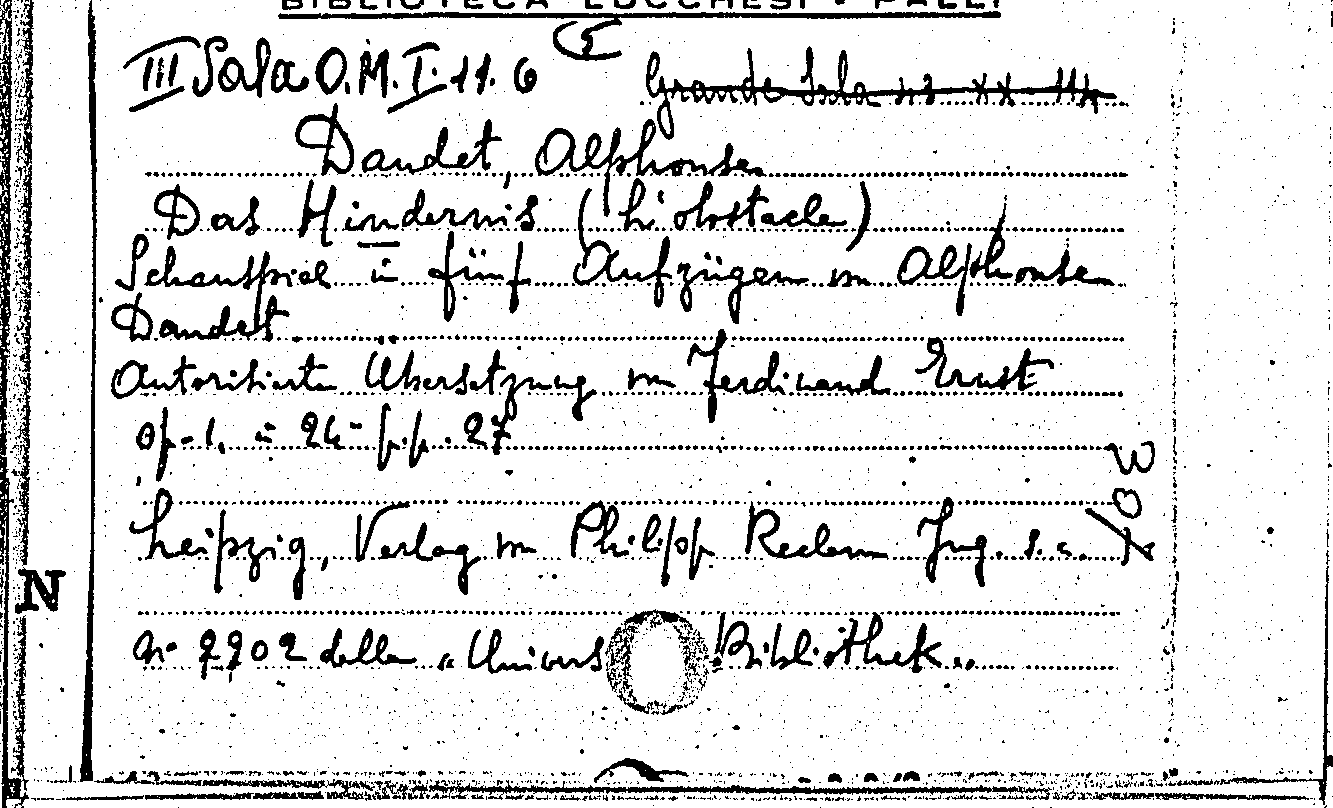 BIBLIOTECA LUCCHESI - PALLI
5
III Sala O.M.I. 11. 6
Grande Sala 43 XX 114
Daudet, Alphonse
Das Hindernis (L'obstacle)
Schauspiel in fünf Aufzügen von Alphonse
Daudet.
Autorisierte Übersetzung von Ferdinand Ernst
op. 1. in 24- p.p. 27
Leipzig, Verlag von Philipp Reclam Jug. s. a.
N
nº 2902 della "Univers Bibliothek"